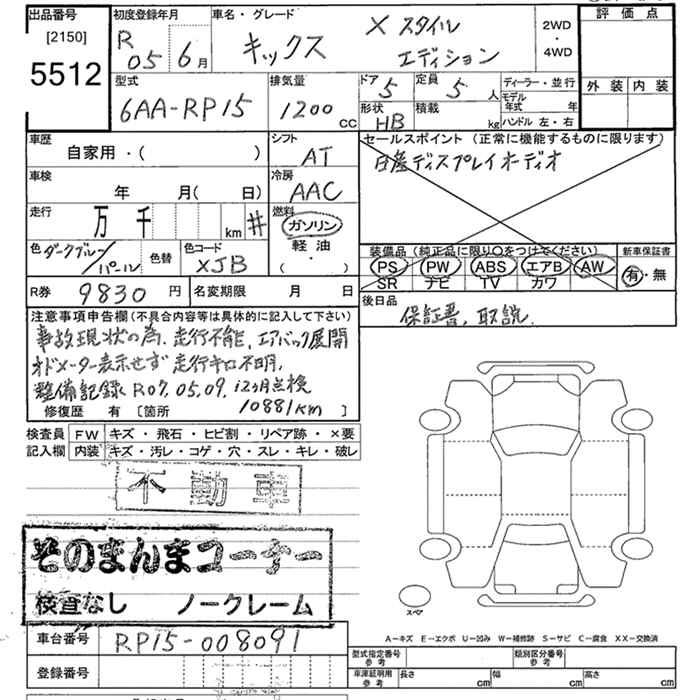 出品番号
[2150]
5512
初度登録年月
R 05 年 6 月
車名・グレード
キックス
X スタイル
エディション
2WD
・
4WD
評 価 点
外 装 内 装
型式
6AA-RP15
排気量
1200 CC
ドア 5
定員 5 人
形状 HB
積載 kg
ディーラー・並行
モデル年式 年
ハンドル 左・右
車歴
自家用・( )
シフト
AT
車検
年 月( 日)
冷房
AAC
走行
万 千 km #
燃料
ガソリン
軽 油
・( )
色 ダークブルー/パール
色替
色コード
XJB
R券 9830 円
名変期限 月 日
セールスポイント (正常に機能するものに限ります)
日産ディスプレイオーディオ
装備品(純正品に限り○をつけてください)
PS PW ABS エアB AW
SR ナビ TV カワ
新車保証書
有・無
後日品
保証書、取説
注意事項申告欄(不具合内容等は具体的に記入して下さい)
事故現状の為、走行不能、エアバック展開
オドメーター表示せず 走行キロ不明、
整備記録 R07.05.09. 12ヶ月点検
10881km)
修復歴 有 [箇所 ]
検査員 FW キズ・飛石・ヒビ割・リペア跡・×要
記入欄 内装 キズ・汚レ・コゲ・穴・スレ・キレ・破レ
不 動 車
そのまんまコーナー
検査なし ノークレーム
車台番号 RP15-008091
登録番号
スペア
A−キズ E−エクボ U−凹み W−補修跡 S−サビ C−腐食 XX−交換済
型式指定番号
参 考
類別区分番号
参 考
車庫証明用
参 考
長さ cm
幅 cm
高さ cm